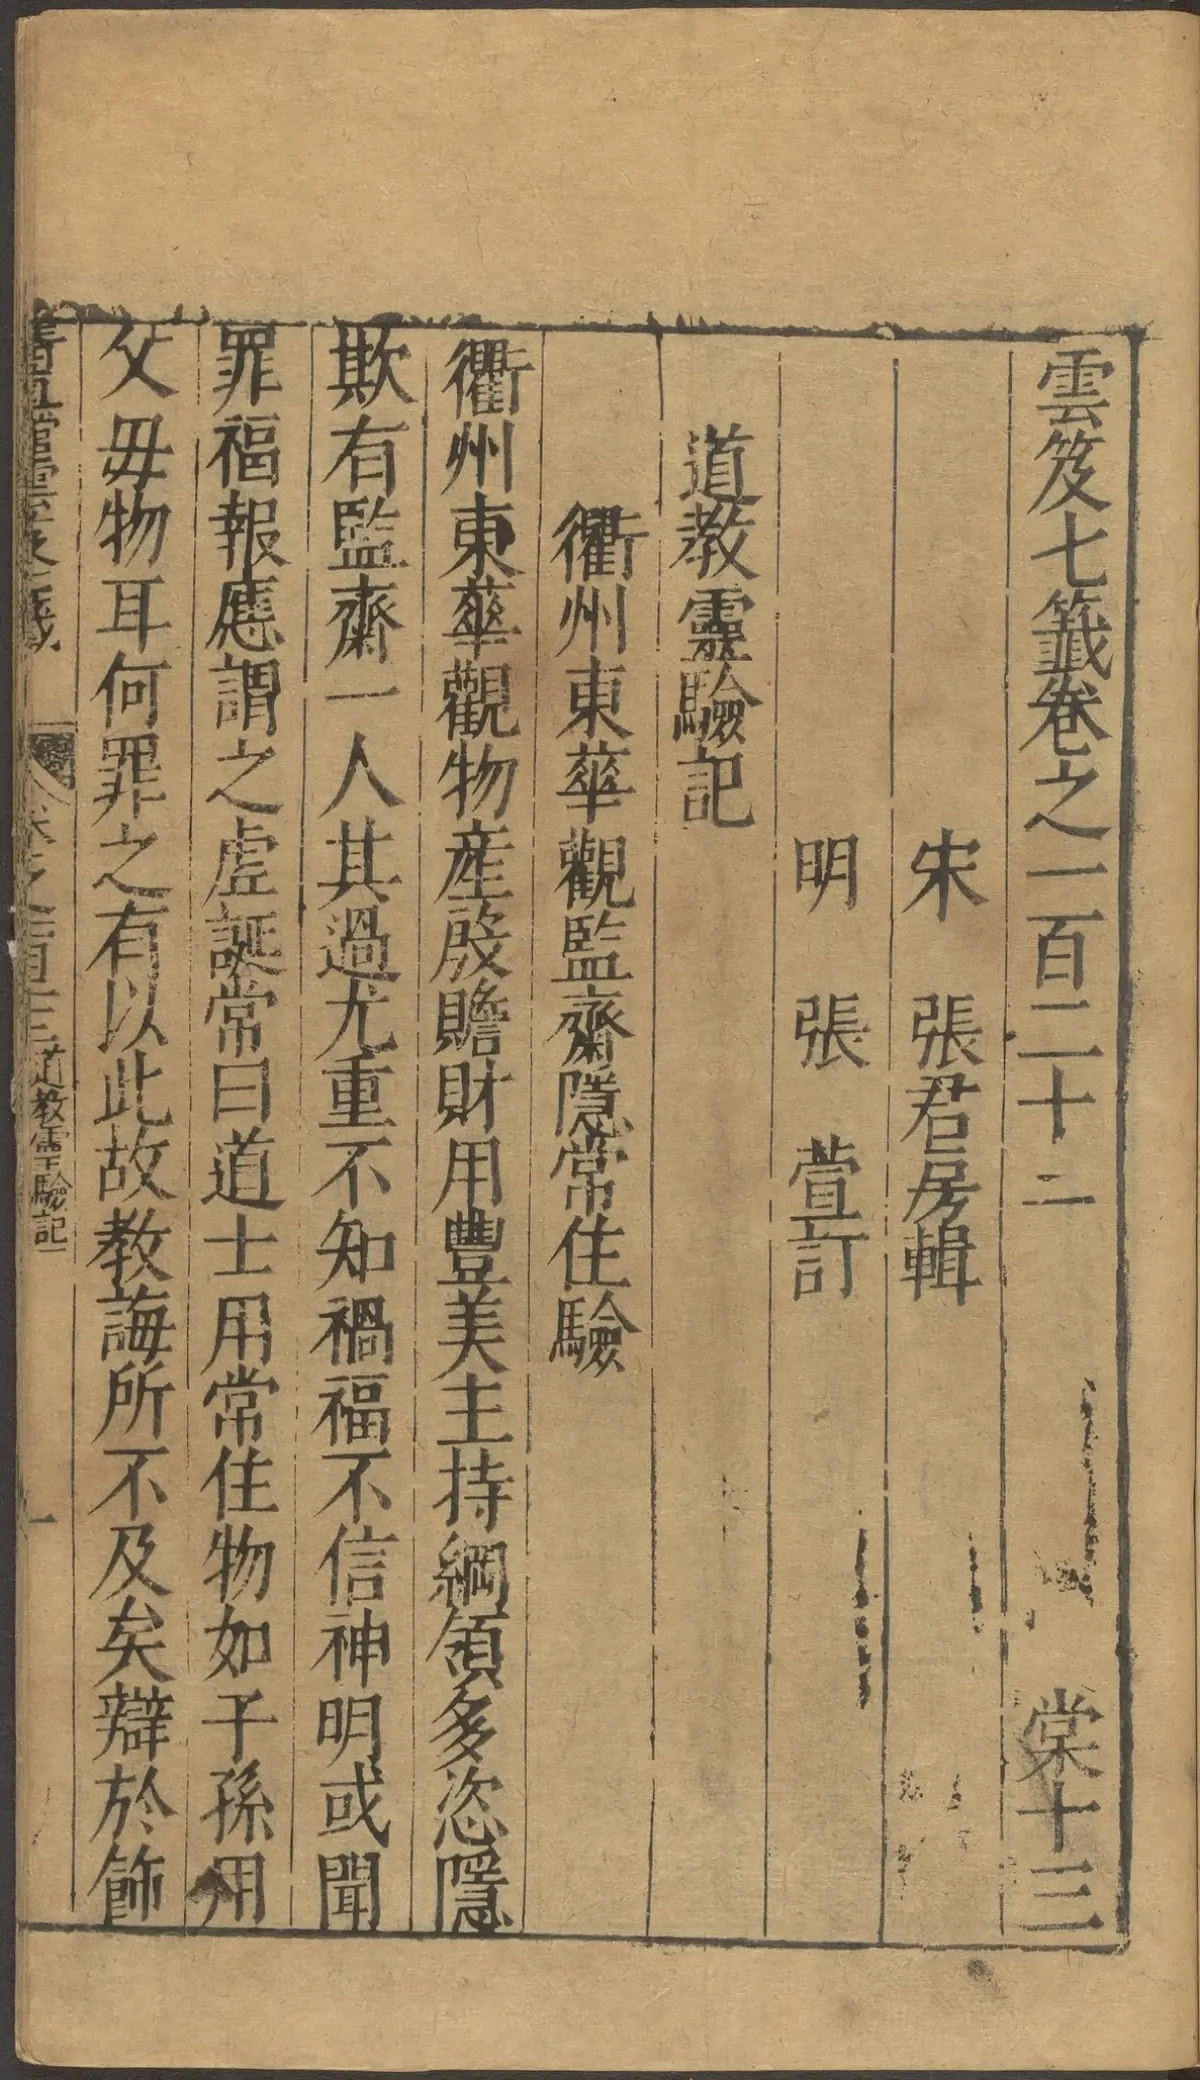 雲笈七籤卷之一百二十二 棠十三
宋 張君房輯
明 張 萱訂
道教靈驗記
衢州東華觀監齋隱常住驗
衢州東華觀物産殷贍財用豐美主持綱領多恣隱
欺有監齋一人其過尤重不知禍福不信神明或聞
罪福報應謂之虛誕常曰道士用常住物如子孫用
父毋物耳何罪之有以此故教誨所不及矣辯於飾
道教靈驗記 一